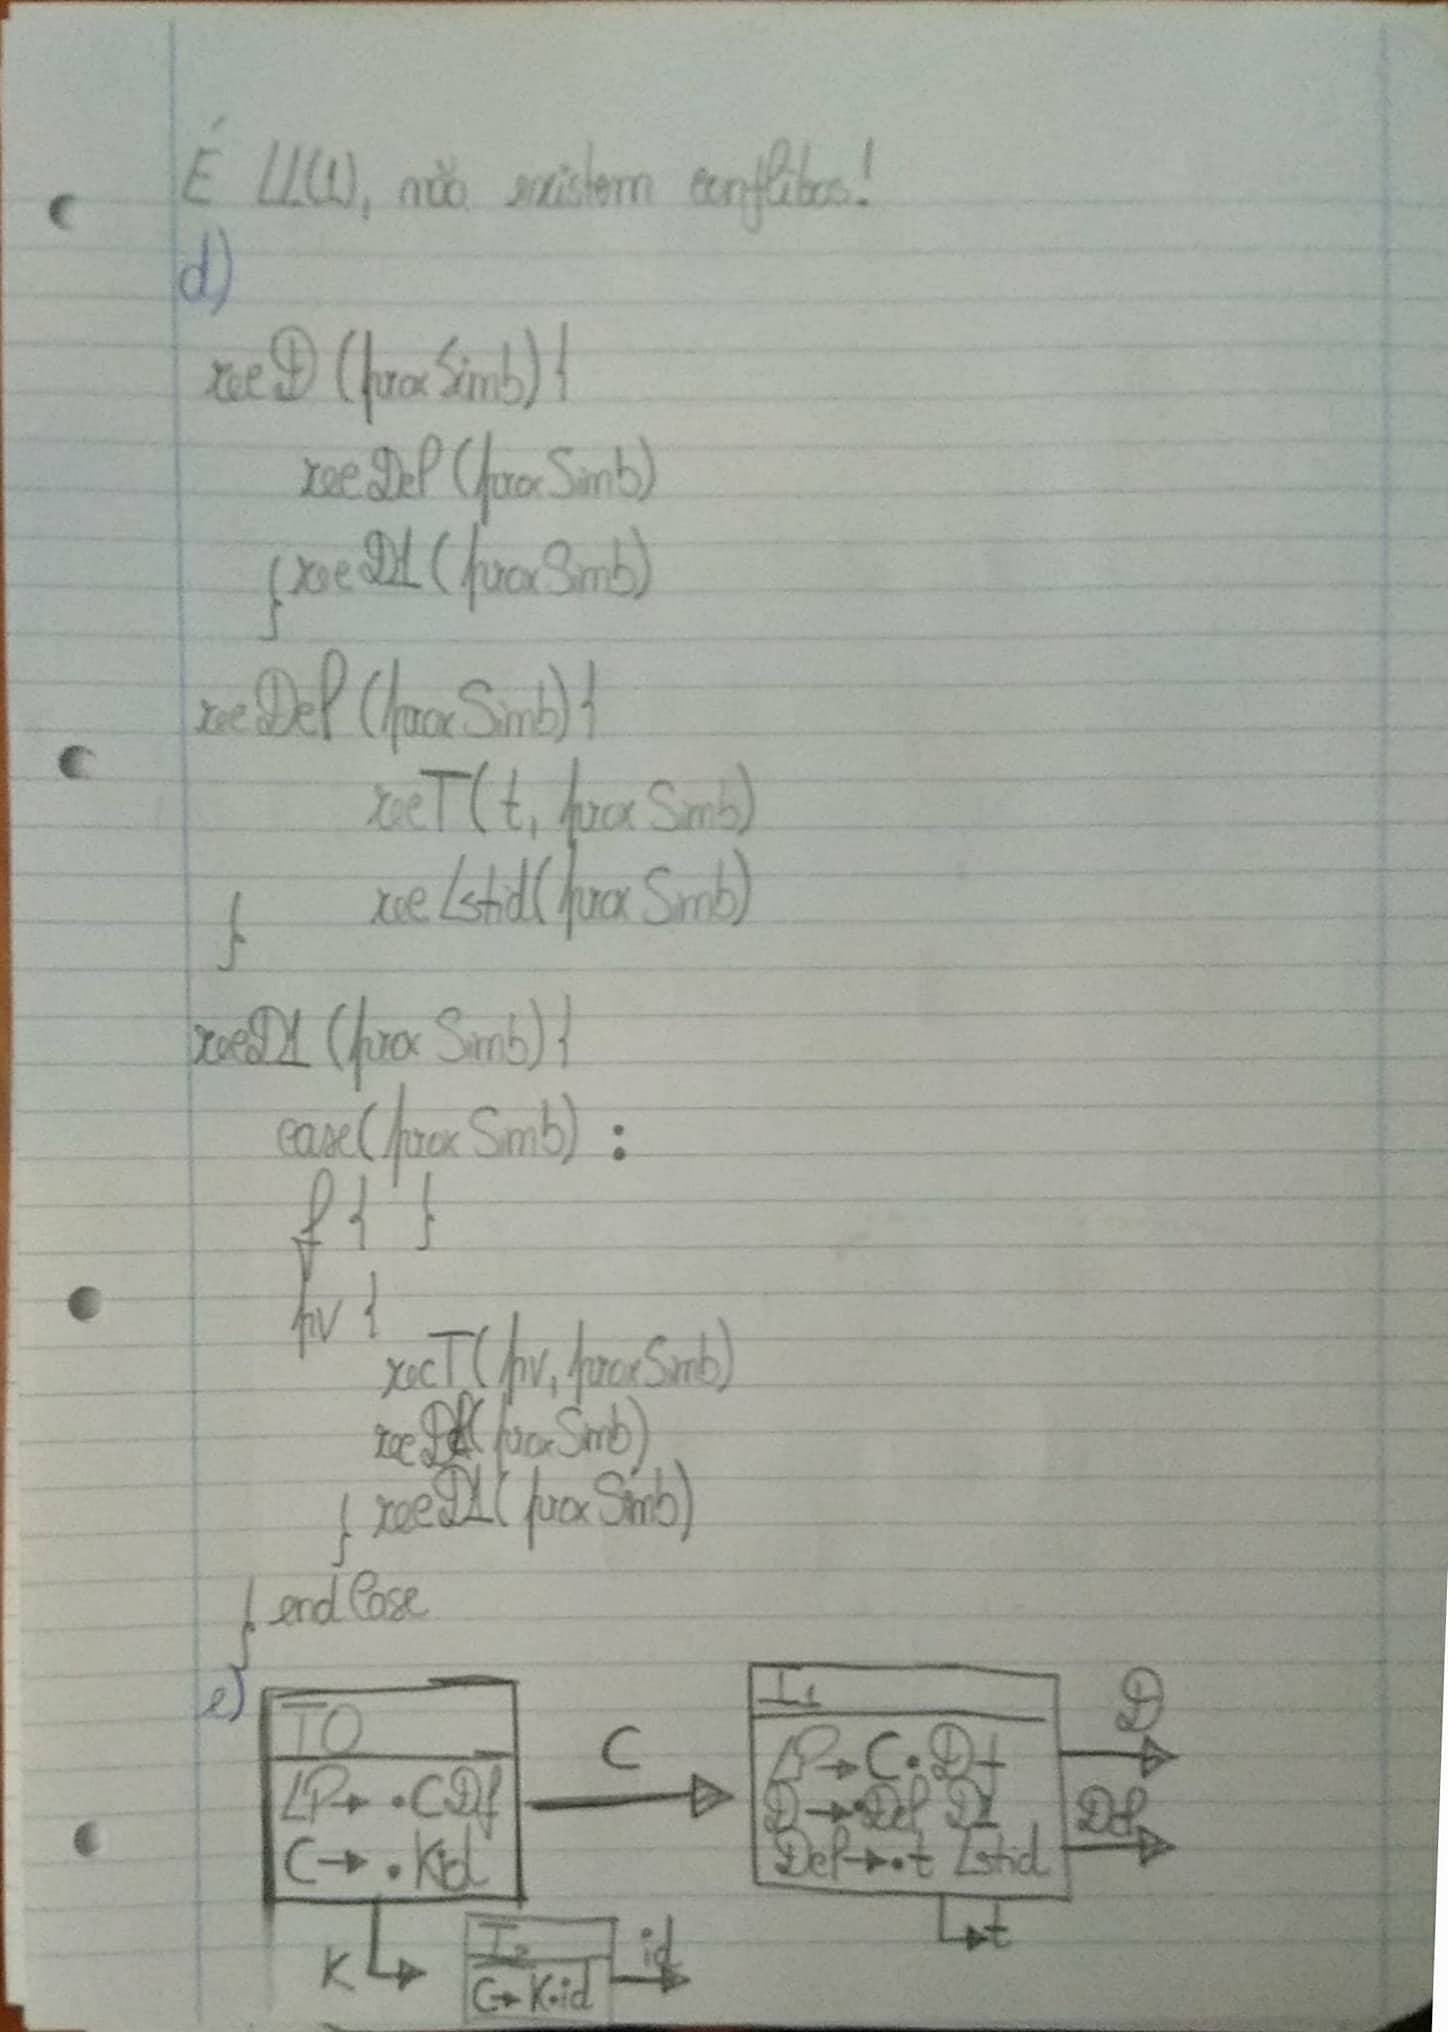 É LL(1), não existem conflitos!
d)
recD (proxSimb) {
recDef (proxSimb)
} recD1 (proxSimb)
recDef (proxSimb) {
recT(t, proxSimb)
} recLstid(proxSimb)
recD1 (proxSimb) {
case(proxSimb) :
f { }
pv {
recT(pv, proxSimb)
recDef(proxSimb)
} recD1(proxSimb)
} endCase
e)
I0
LP→ .CDf
C→ .Kid
C
I1
LP→C.Df
D→.Def D1
Def→.t Lstid
D
Def
t
K
I2
C→K.id
id